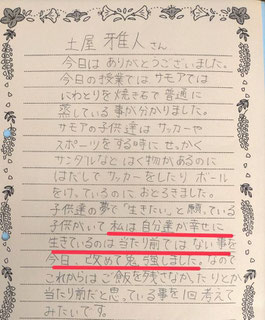 土屋 雅人さん
今日はありがとうございました。
今日の授業ではサモアでは
にわとりを焼き石で普通に
蒸している事が分かりました。
サモアの子供達はサッカーや
スポーツをする時に、せっかく
サンダルなどはく物があるのに
はだしでサッカーをしたりボール
をけっているのに、おどろきました。
子供達の夢で「生きたい」と願っている
子供がいて私は自分達が幸せに
生きているのは当たり前ではない事を
今日、改めて勉強しました。なので
これからはご飯を残さなかったりとか
当たり前だと思っている事を1回考えて
みたいです。